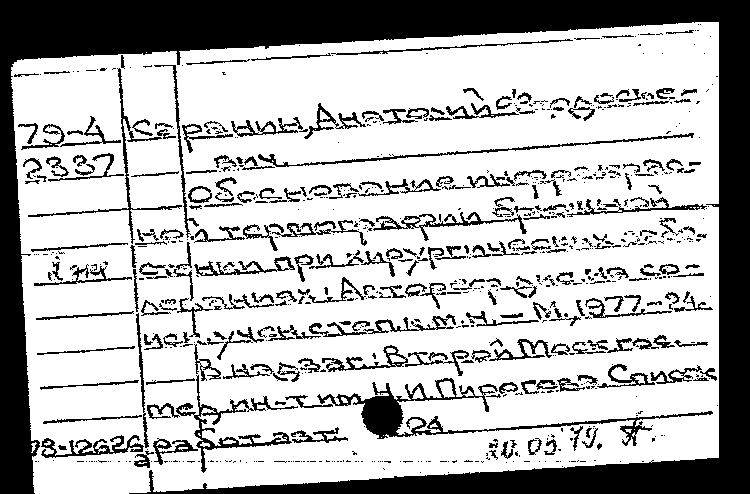 79-4 Каранин, Анатолий Федосье-
2337 вич.
Обоснование инфракрас-
ной термографии брюшной
2 экз стенки при хирургических забо-
леваниях: Автореф. дис. на со-
иск. учен. степ. к.м.н. – М., 1977. – 24.
В надзаг.: Второй Моск. гос.
мед. ин-т им. Н.И. Пирогова. Список
78-12626а работ авт.: 24.
20.03.79.